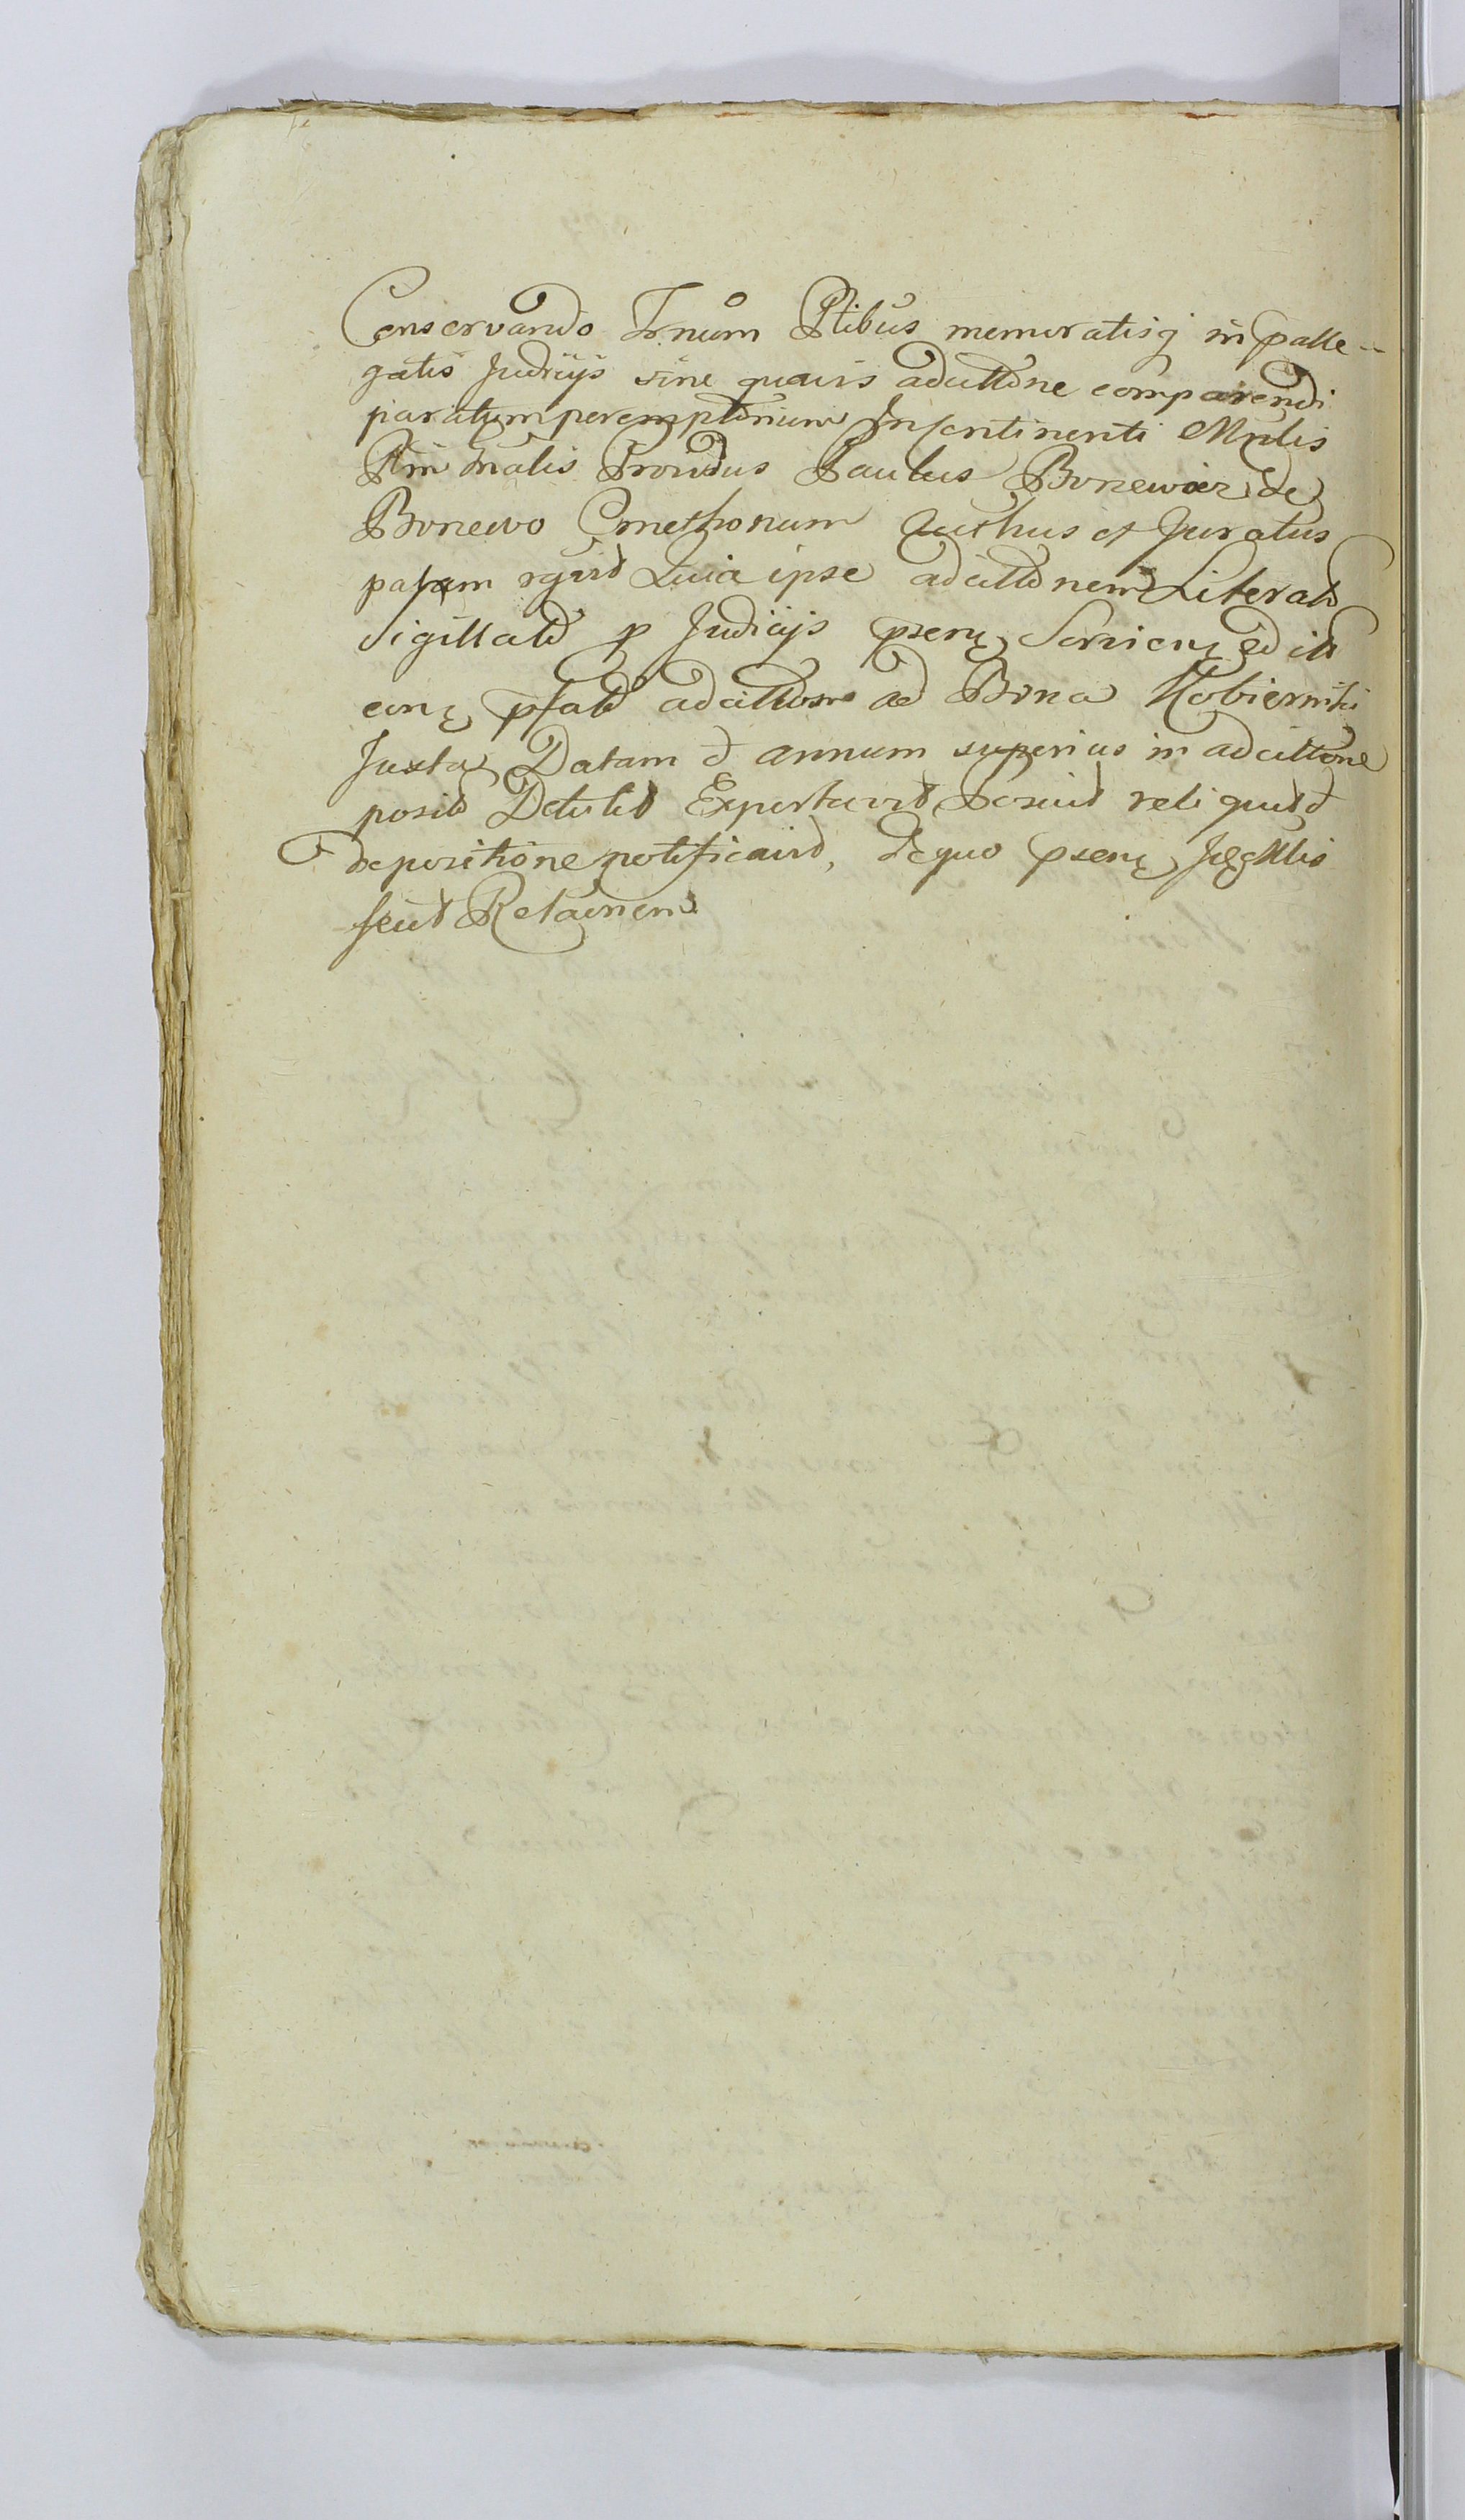 Conservando Trnum Ptibus memoratisq in palle-
gatis Judicijs sine quavis adcittone comparendi
paratum peremptorium In continenti Mnlis
Ptin tnalis Providus Paulus Bonewicz de
Bonewo Cmethonum Authus et Juratus
palam rgnvd Quia ipse adcittonem Literatd
Sigillatd p Judicijs psens Serviens edit
eans pfatd adcittone ad Bona Kobierniki
Juxta Datam et annum superius in adcittone
posits Detulit Exportavit Posuit reliquit et
de positione notificavit, de quo psens
fecit Relaonem